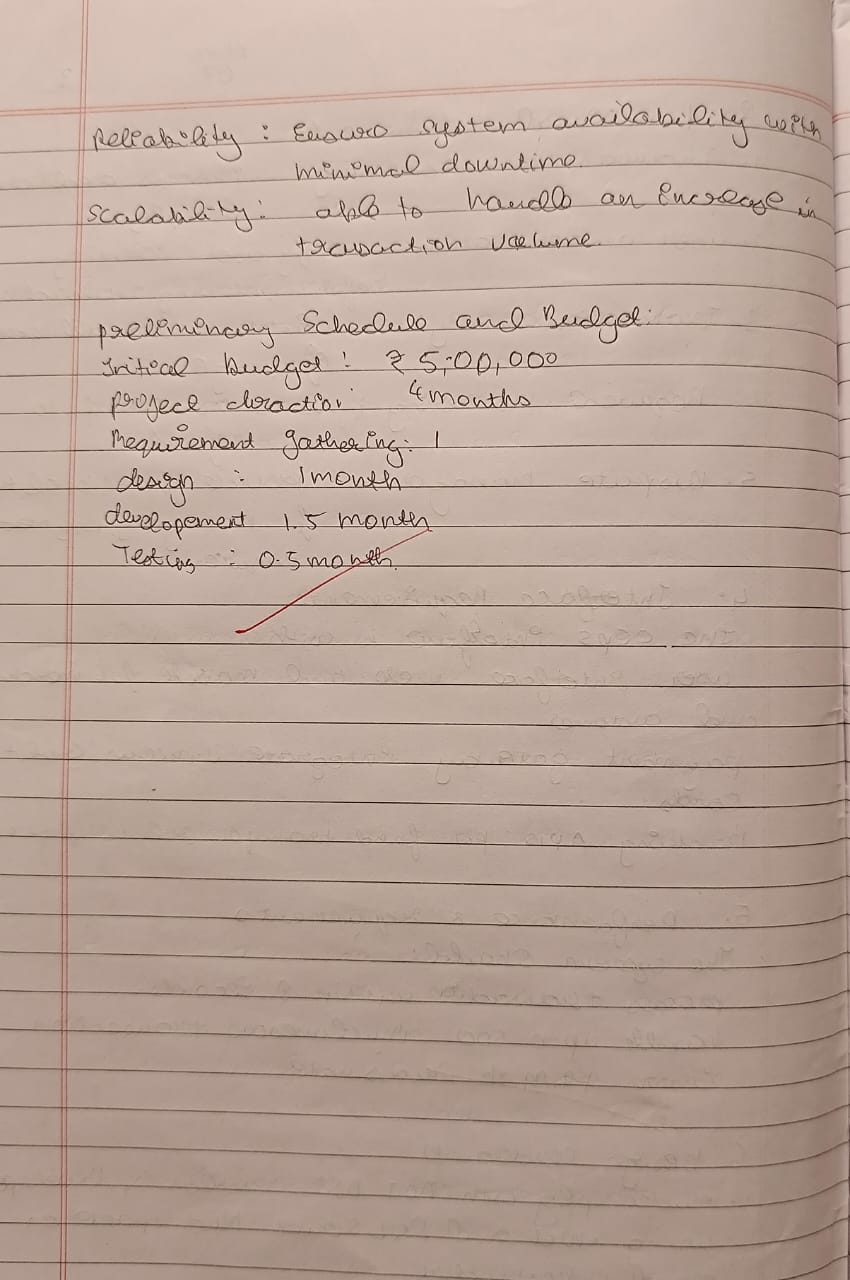 Reliability : Ensure system availability with
minimal downtime.
Scalability : able to handle an increase in
transaction volume.
preliminary Schedule and Budget:
Initial budget : ₹ 5,00,000
project duration 4 months
Requirement gathering: 1
design : 1 month
developement 1.5 month
Testing : 0.5 month.